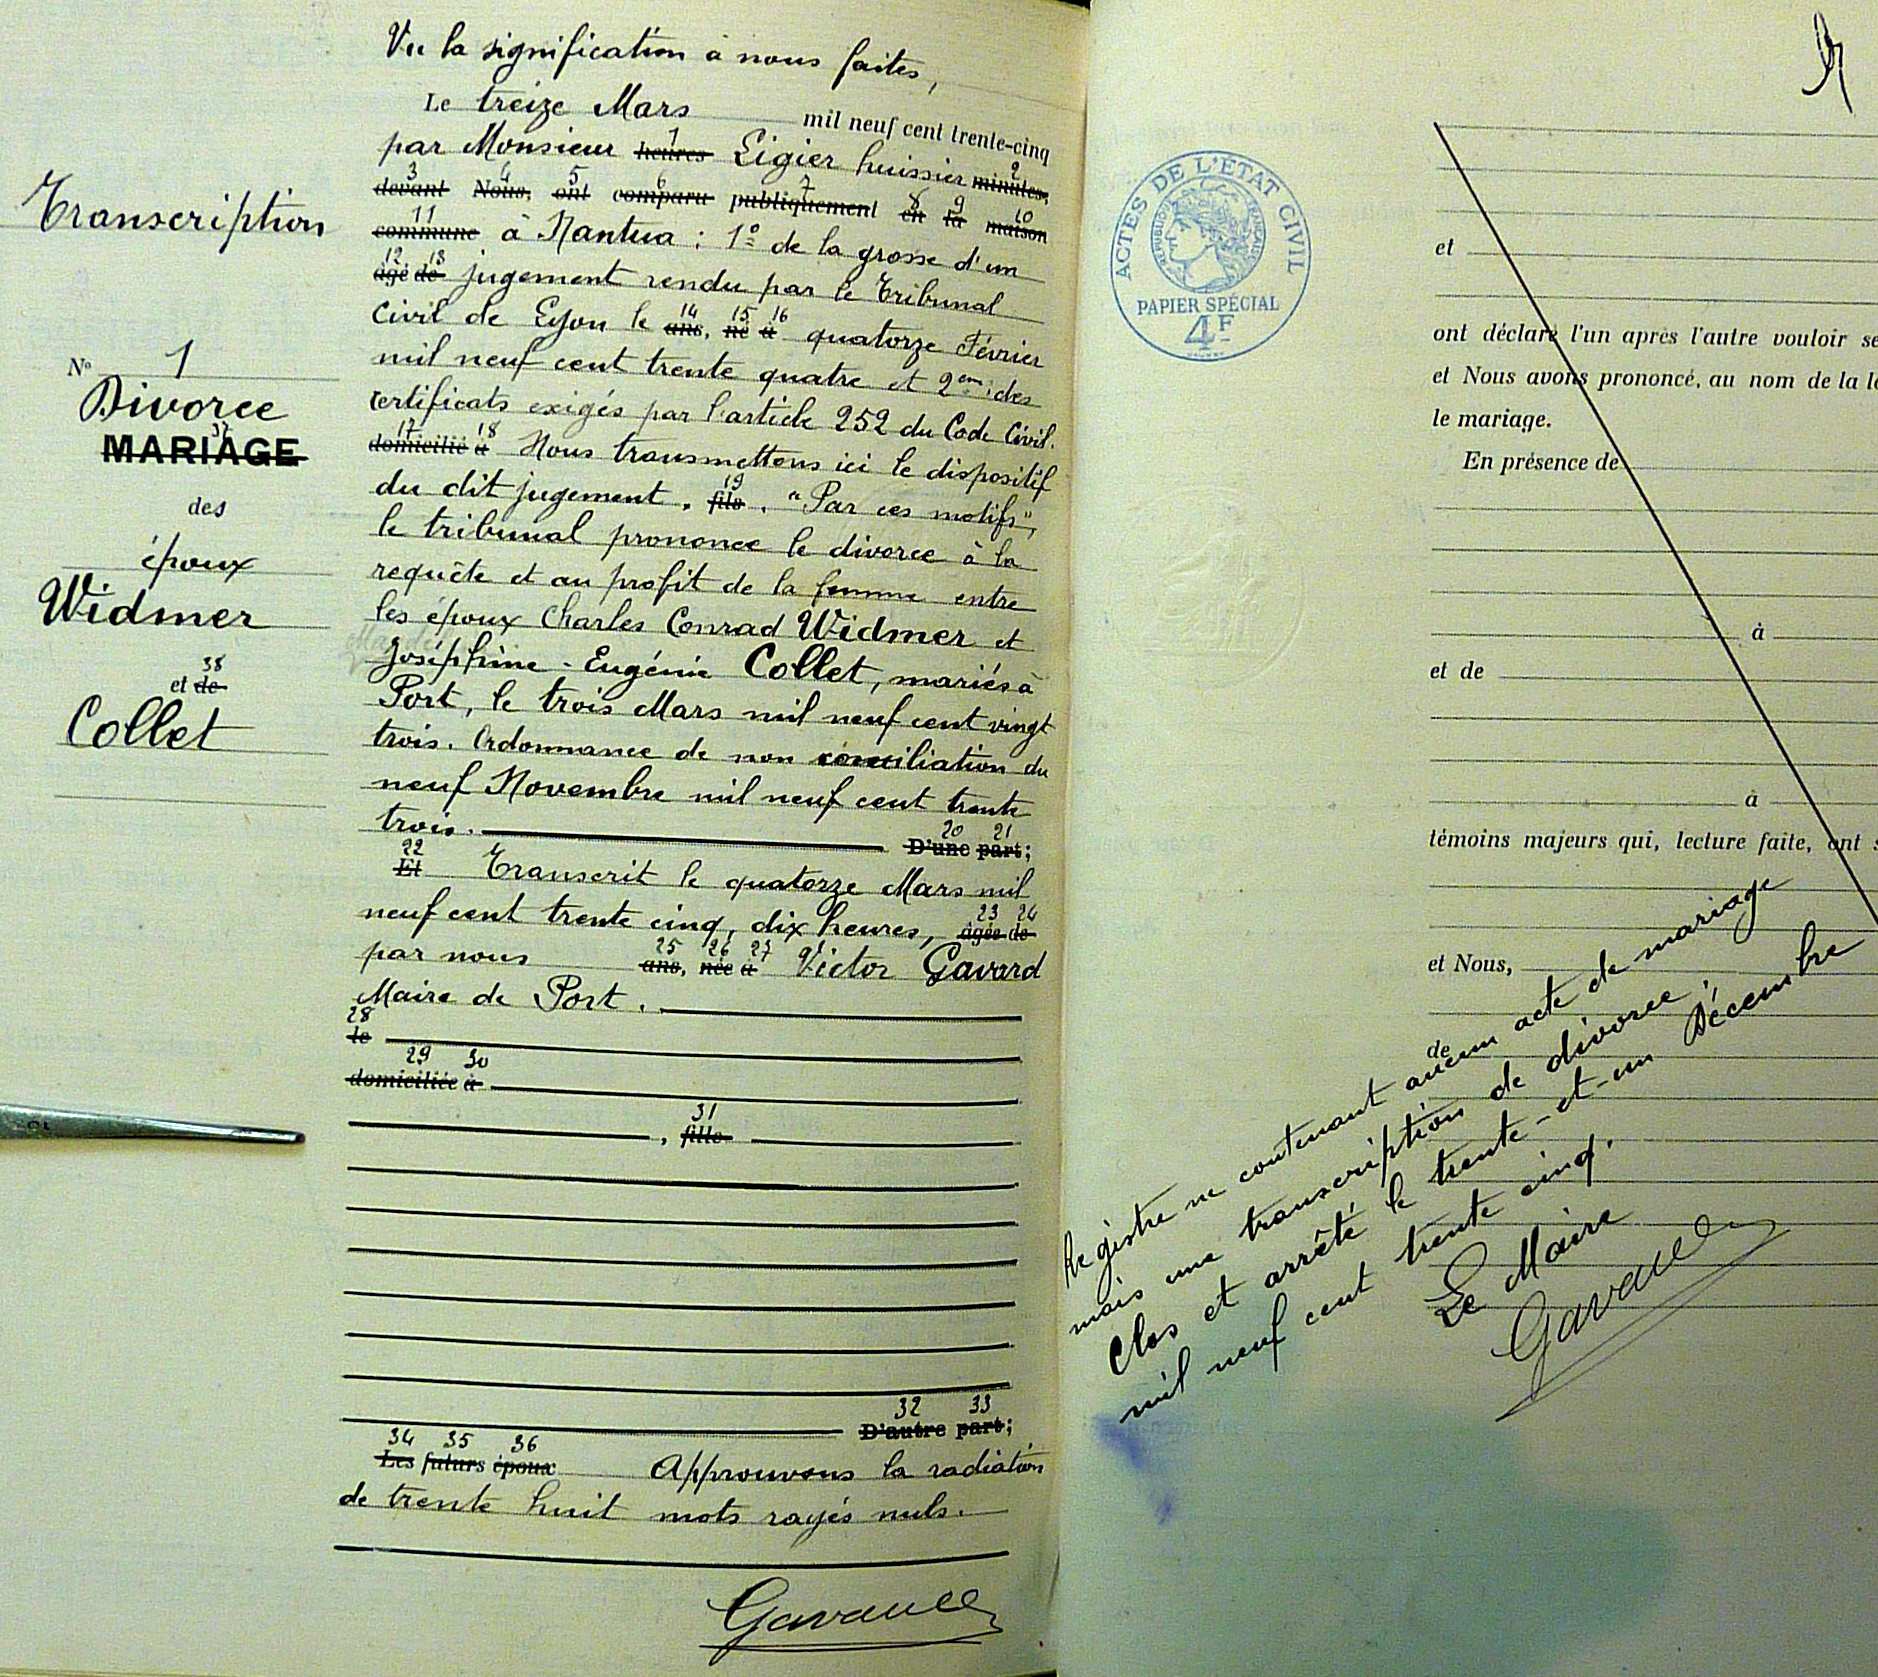 Vu la signification à nous faites,
Le treize Mars mil neuf cent trente-cinq
par Monsieur heures 1 Ligier huissier minutes, 2
devant 3 Nous, 4 ont 5 comparu 6 publiquement 7 en 8 la 9 maison 10
commune 11 à Nantua : 1° de la grosse d'un
âgé 12 de 13 jugement rendu par le Tribunal
Civil de Lyon le ans, 14 né 15 à 16 quatorze Février
mil neuf cent trente quatre et 2em : des
certificats exigés par l'article 252 du Code Civil.
domicilié 17 à 18 Nous transmettons ici le dispositif
du dit jugement. fils 19. "Par ces motifs",
le tribunal prononce le divorce à la
requête et au profit de la femme entre
les époux Charles Conrad Widmer et
Joséphine - Eugénie Collet, mariés à
Port, le trois Mars mil neuf cent vingt
trois. Ordonnance de non conciliation du
neuf Novembre mil neuf cent trente
trois. D'une 20 part; 21
Et 22 Transcrit le quatorze Mars mil
neuf cent trente cinq, dix heures, âgée 23 de 24
par nous ans, 25 née 26 à 27 Victor Gavard
Maire de Port.
28 le
domiciliée 29 à 30
, fille 31
D'autre 32 part; 33
Les 34 futurs 35 époux 36 Approuvons la radiation
de trente huit mots rayés nuls.
Transcription
N° 1
Divorce
MARIAGE 37
des
époux
Widmer
et de 38
Collet
ACTES DE L'ÉTAT CIVIL
RÉPUBLIQUE FRANÇAISE
PAPIER SPÉCIAL
4F
et
ont déclaré l'un après l'autre vouloir se
et Nous avons prononcé, au nom de la l
le mariage.
En présence de
à
et de
à
témoins majeurs qui, lecture faite, ont s
et Nous,
de
Registre ne contenant aucun acte de mariage
mais une transcription de divorce;
Clos et arrêté le trente-et-un Décembre
mil neuf cent trente cinq.
Le Maire